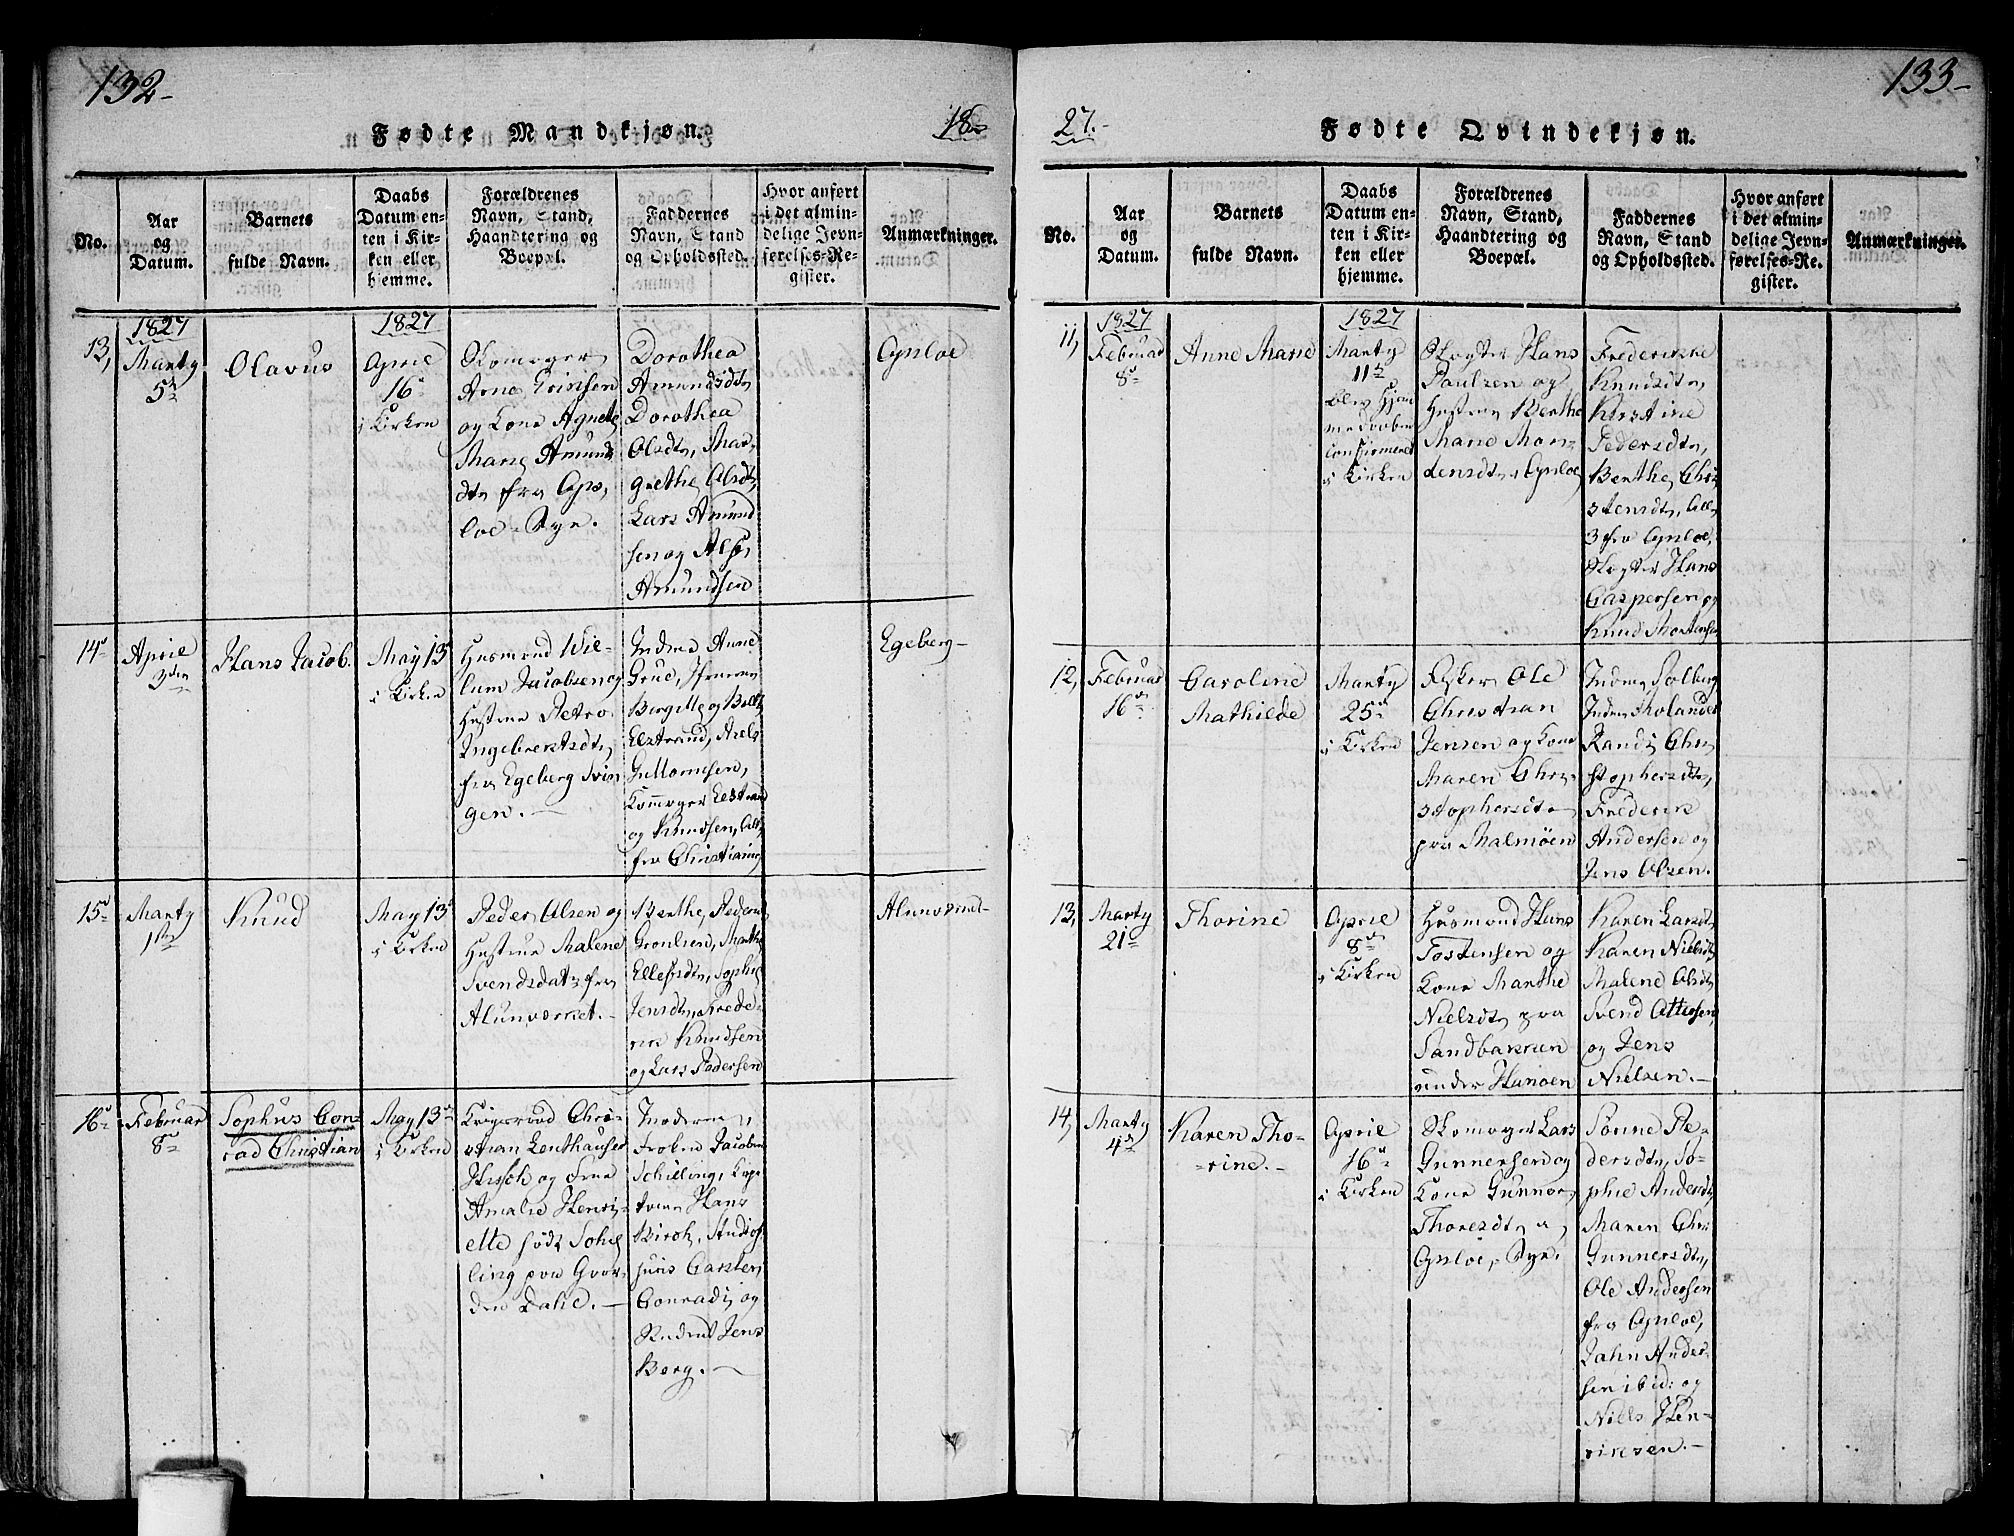 132-
Fødte Mandkjøn.
18-
No.
Aar
og
Datum.
Barnets
fulde Navn.
Daabs
Datum en-
ten i Kir-
ken eller
hjemme.
Forældrenes
Navn, Stand,
Haandtering og
Boepæl.
Faddernes
Navn, Stand
og Opholdssted.
Hvor anført
i det almin-
delige Jevn-
førelses-Re-
gister.
Anmærkninger.
13,
1827
Marty
5te
Olavus
1827
April
16de
i Kirken
Skomager
Arne
og Kone Agnete
Marie Amunds
dtr fra Gyn,
loe Bye.
Dorothea
Amundsdtr
Dorothea
Olsdtr, Mar-
grethe Olsdtr,
Lars Amund
sen og
Amundsen
Gynloe
14-
April
3den
Hans Jacob.
May 13
i Kirken
Husmand Wil-
lum Jacobsen og
Hustrue Petro
Ingebretsdtr
fra Egeberg Svin
gen.-
Anne
Bergitte og
Elstrand,
Guttormsen,
Elstrand
og Knudsen, alle
fra Christiania
Egeberg-
15-
Marty
1ste
Knud
May 13
i Kirken
Peder Olsen og
Hustrue Malene
Svendsdatr fra
Alunværket.-
Berthe Peders
Marthe
Ellefsdtr, Sophie
Jensdtr, Frede-
rik Knudsen
og Lars Pedersen
Alunværket-
16-
Februar
8de
Sophus Con-
rad Christian
May 13de
i Kirken
Krigsraad Chri-
stian Lenthauser
Hirsch og Frue
Amalie Henri-
ette født Schil
ling paa
Dahl.-
Moderen,
Frøken Jacobine
Schilling, Cap-
tain Hans
Birch, Stud:
juris Carsten
Conradi og
Student Jens
Berg.-
133-
27.-
Fødte Qvindekjøn.
No.
Aar
og
Datum.
Barnets
fulde Navn.
Daabs
Datum en-
ten i Kir-
ken eller
hjemme.
Forældrenes
Navn, Stand,
Haandtering og
Boepæl.
Faddernes
Navn, Stand
og Opholdssted.
Hvor anført
i det almin-
delige Jevn-
førelses-Re-
gister.
Anmærkninger.
11,
1827
Februar
8de
Anne Marie
1827
Marty
11te
blev Hjem
medaaben
confirmeret
i Kirken
Slagter Hans
Paulsen og
Hustrue Berthe
Marie Mor-
tensdtr, Gynloe
Frederikke
Knudsdtr,
Kirstine
Pedersdtr,
Berthe Chri
stensdtr, alle
3 fra Gynloe,
Slagter Hans
Caspersen og
Knud Mortensen
12,
Februar
16de
Caroline
Mathilde
Marty
25de
i Kirken
Fisker Ole
Christian
Jensen og Kone
Maren Chri-
stophersdtr
paa Malmøen
Solberg
Molander
Randi Chri
stophersdtr,
Frederik
Andersen og
Jens Olsen.
13,
Marty
21de
Thorine
April
8de
i Kirken
Husmand Hans
Tostensen og
Kone Marthe
Nielsdtr paa
Sandbakken
under
Karen Larsdtr
Karen Nielsdtr
Malene Olsdtr
Svend
og Jens
Nielsen.-
14,
Marty
4de
Karen Tho-
-rine.-
April
16de
i Kirken
Skomager Lars
Gunnersen og
Kone
Thoresdtr
Gynloe, Bye.
Pe-
dersdtr, So-
phie Andersdtr
Maren Chri
Gunnersdtr,
Ole Andersen
fra Gynloe,
Jahn Ander-
sen ibid: og
Niels Hen-
riksen.-